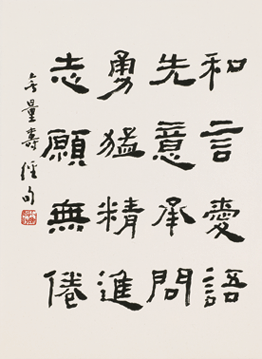 和言愛語
先意承問
勇猛精進
志願無倦
無量壽經句